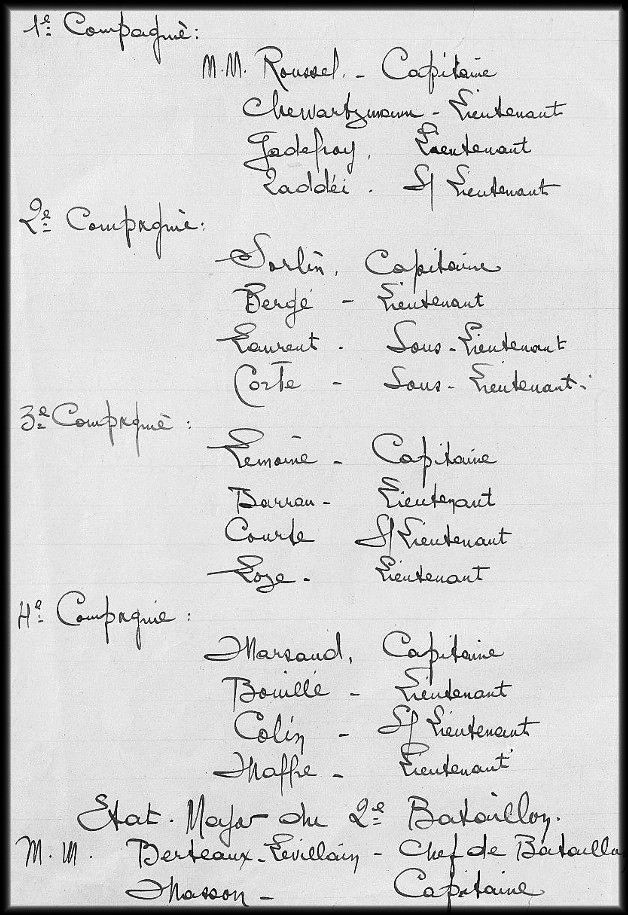 1e Compagnie:
M.M. Roussel. - Capitaine
Chewartzmann - Lieutenant
Godefroy, Lieutenant
Taddéi. S/ Lieutenant
2e Compagnie:
Sorlin, Capitaine
Bergé - Lieutenant
Laurent - Sous-Lieutenant
Corte - Sous-Lieutenant.
3e Compagnie:
Lemoine - Capitaine
Barrau - Lieutenant
Courte S/Lieutenant
Loze - Lieutenant
4e Compagnie:
Marsaud, Capitaine
Bouillé - Lieutenant
Colin - S/ Lieutenant
Maffre - Lieutenant
Etat. Major du 2e Bataillon.
M. M. Berteaux-Levillain - Chef de Bataillo
Masson - Capitaine